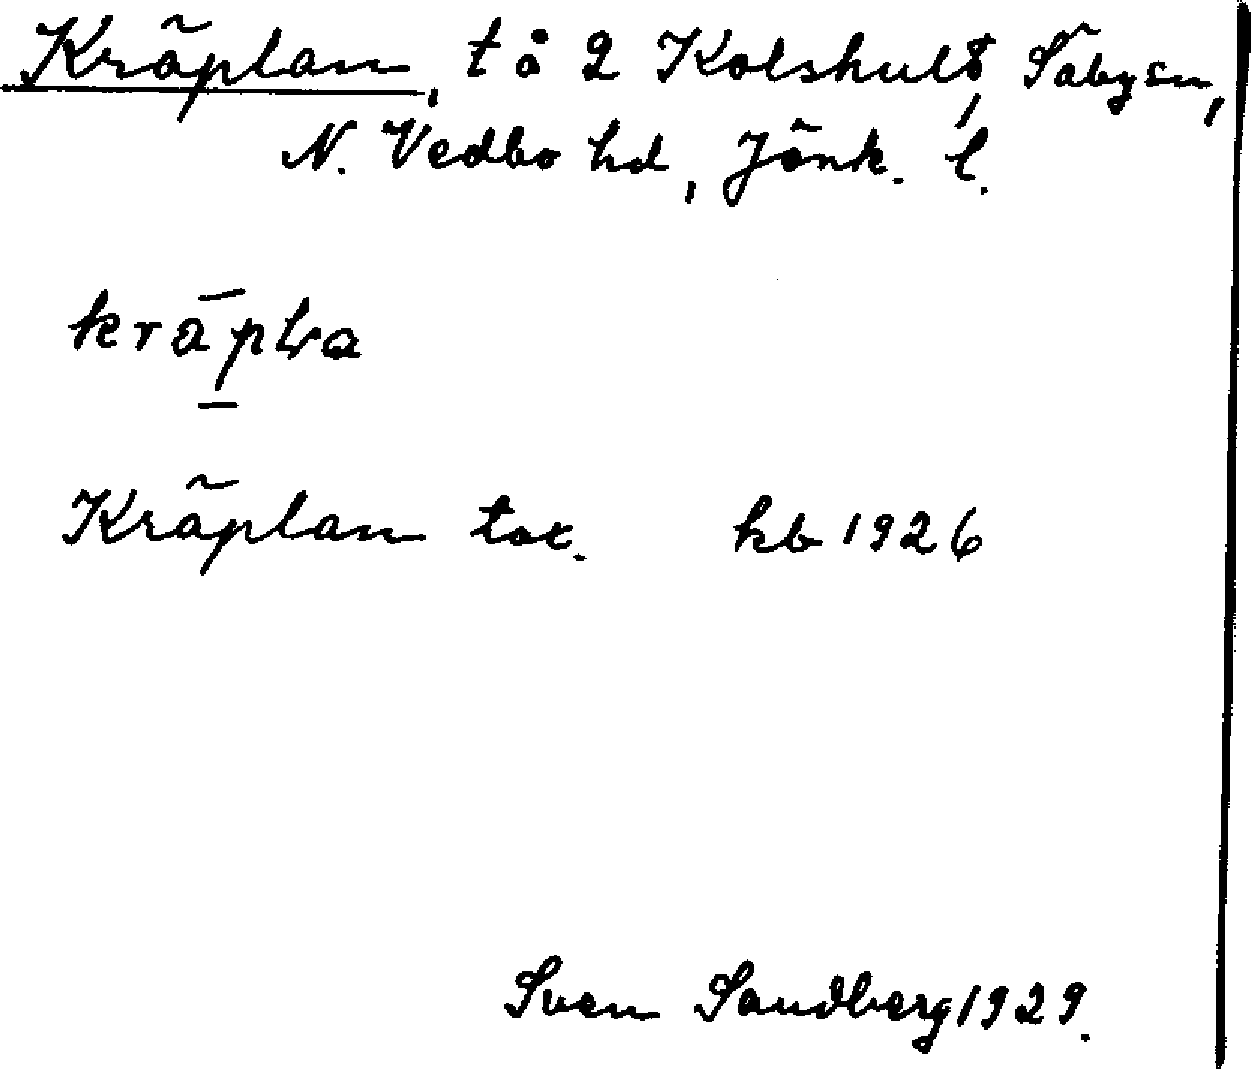 Kräplan, tå 2 Kolshult, Säby sn,
N. Vedbo hd, Jönk. l.
kräpla
Kräplan tor. kb 1926
Sven Sandberg 1929.